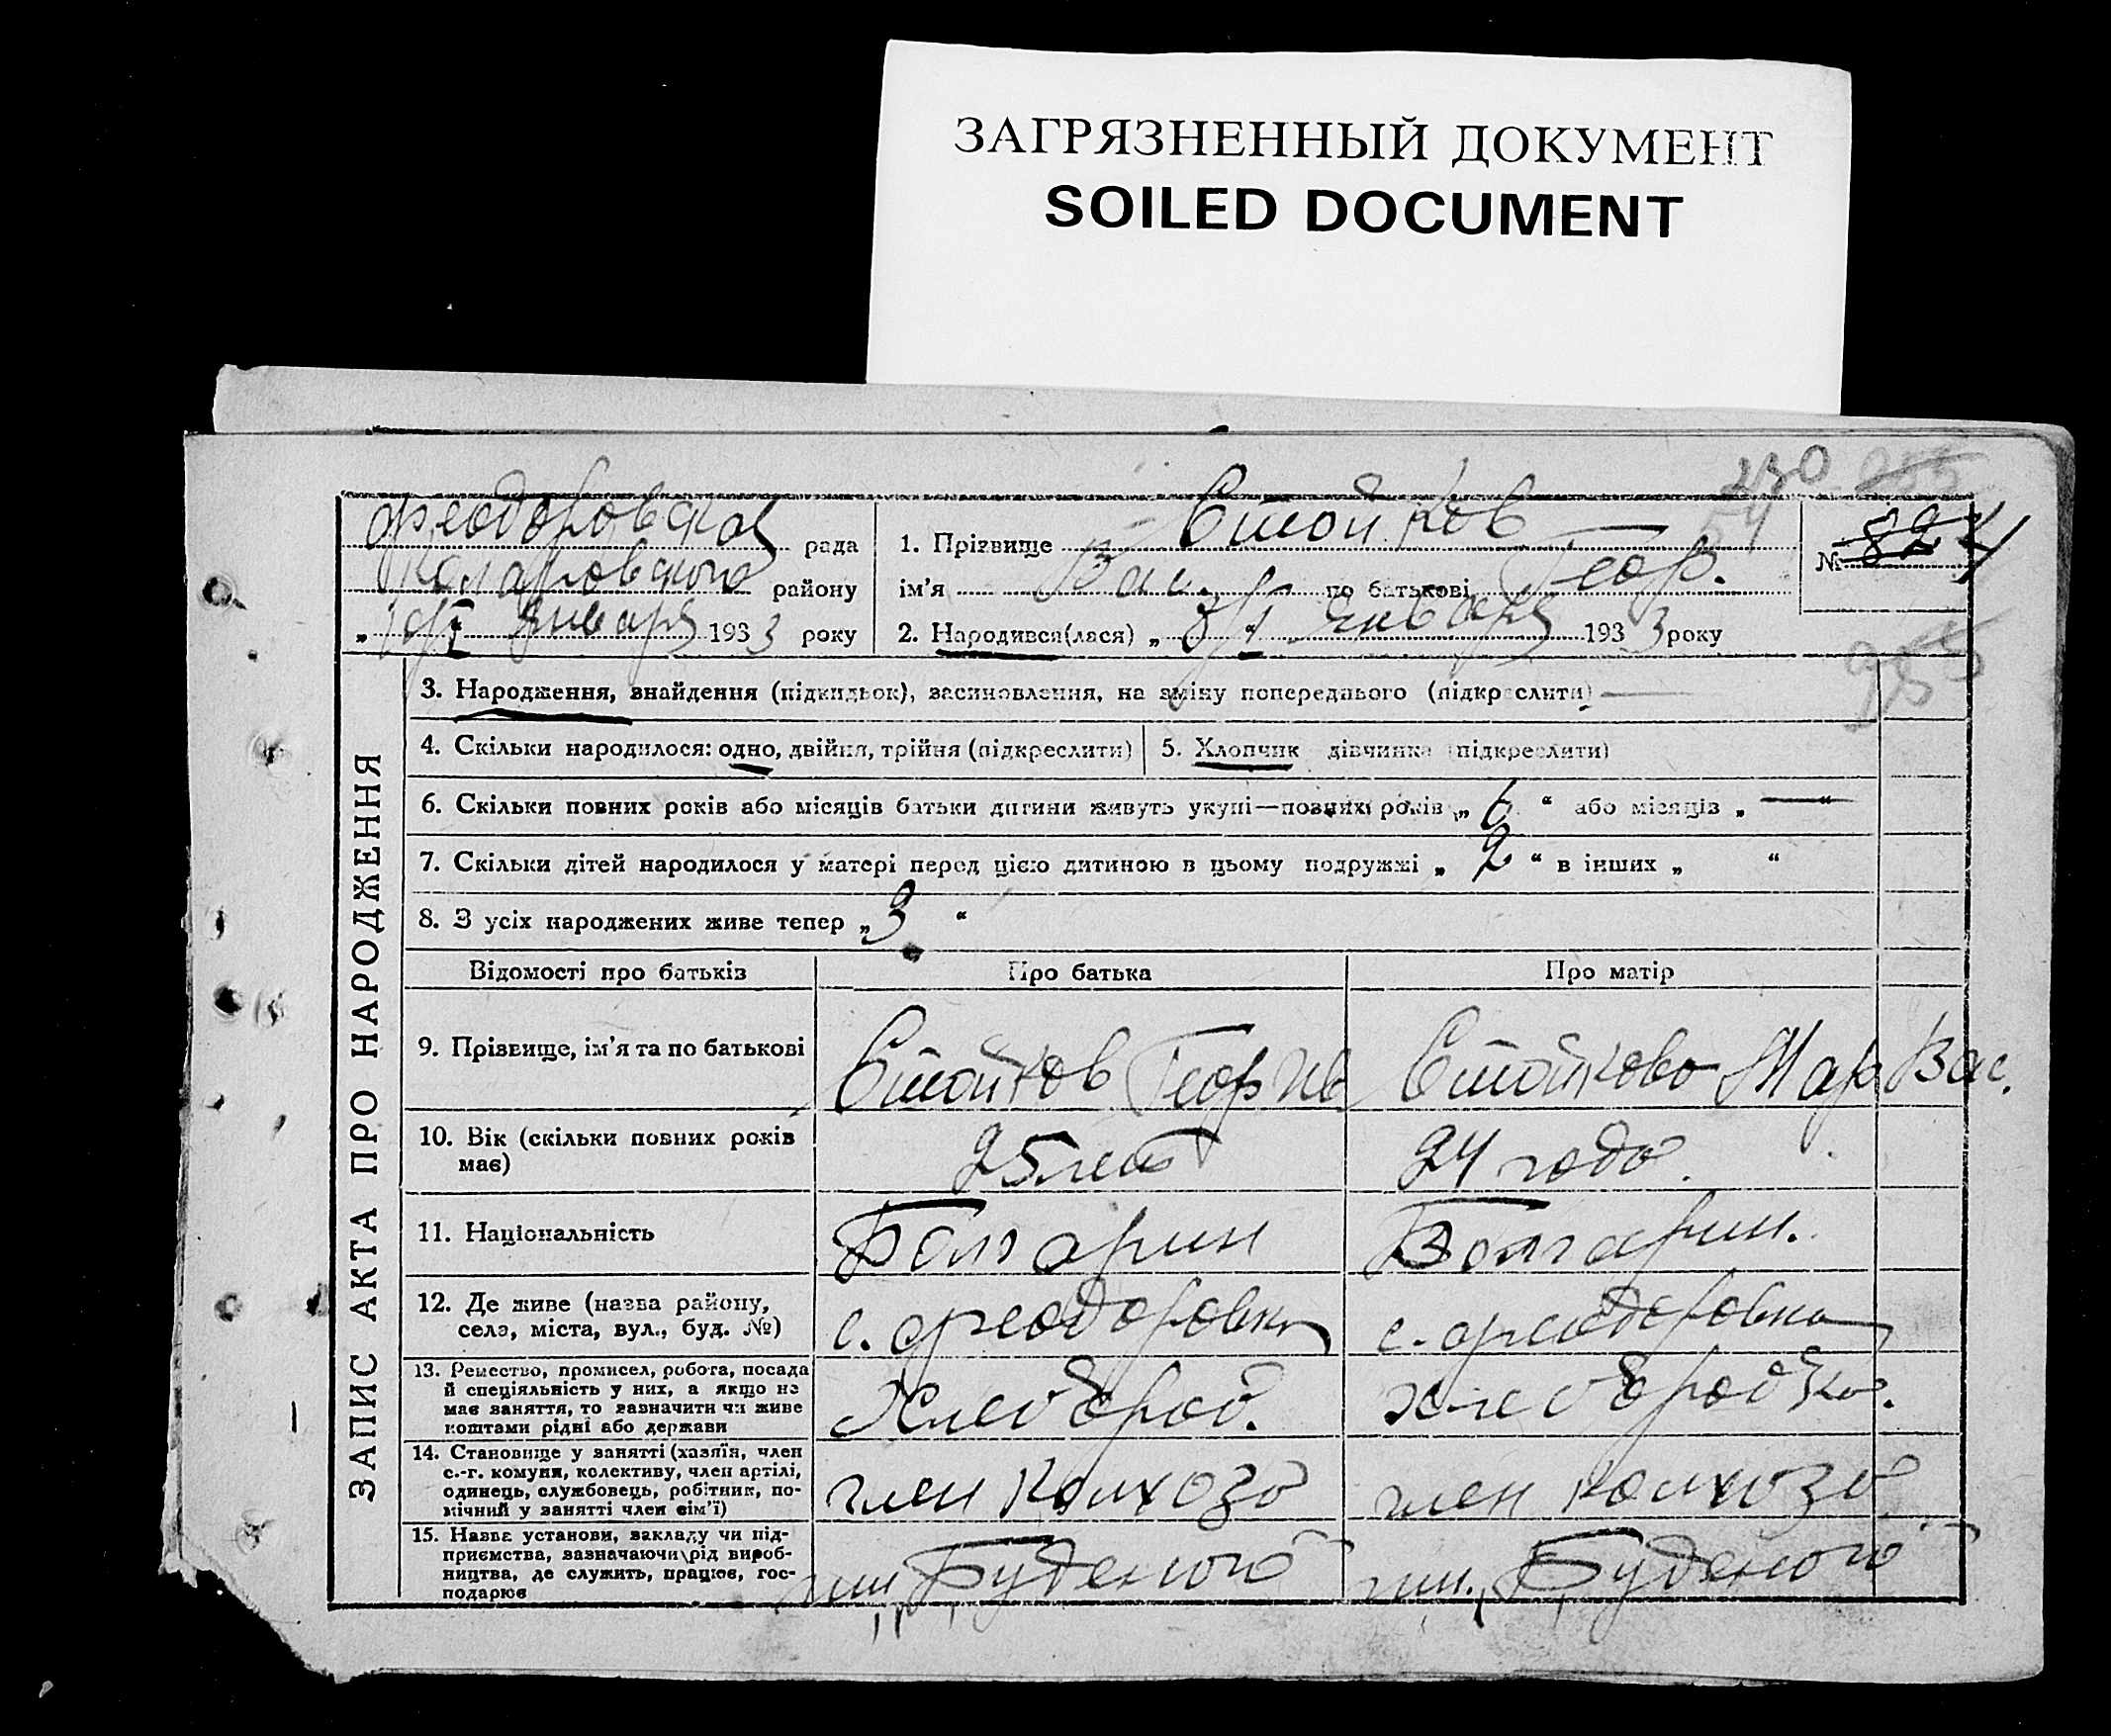 ЗАГРЯЗНЕННЫЙ ДОКУМЕНТ
SOILED DOCUMENT
230 255
54
Феодоровская рада
Коларовского району
" января 1933 року
1. Прізвище Стойков
ім'я Вас. по батькові Геор.
2. Народився(лася) " января 1933 року
№ 82 4
255
ЗАПИС АКТА ПРО НАРОДЖЕННЯ
3. Народження, знайдення (підкидьок), засиновлення, на зміну попереднього (підкреслити)
4. Скільки народилося: одно, двійня, трійня (підкреслити)
5. Хлопчик дівчинка (підкреслити)
6. Скільки повних років або місяців батьки дитини живуть укупі—повних років „ 6 “ або місяців „ — “
7. Скільки дітей народилося у матері перед цією дитиною в цьому подружжі „ 2 “ в інших „ “
8. З усіх народжених живе тепер „ 3 “
Відомості про батьків Про батька Про матір
9. Прізвище, ім'я та по батькові
Стойков Геор Ив
Стойкова Мар Вас.
10. Вік (скільки повних років
має)
25 лет
24 года.
11. Національність
Болгарин
Болгарин.
12. Де живе (назва району,
села, міста, вул., буд. №)
с. Феодоровка
с. Феодоровка
13. Ремество, промисел, робота, посада
й спеціяльність у них, а якщо не
має заняття, то зазначити чи живе
коштами рідні або держави
Хлебород.
хлебородка.
14. Становище у занятті (хазяїн, член
с.-г. комуни, колективу, член артілі,
одинець, службовець, робітник, по-
мічний у занятті член сім'ї)
член колхоза
член колхоза
15. Назва установи, закладу чи під-
приємства, зазначаючи рід вироб-
ництва, де служить, працює, гос-
подарює
им Буденого
им. Буденого